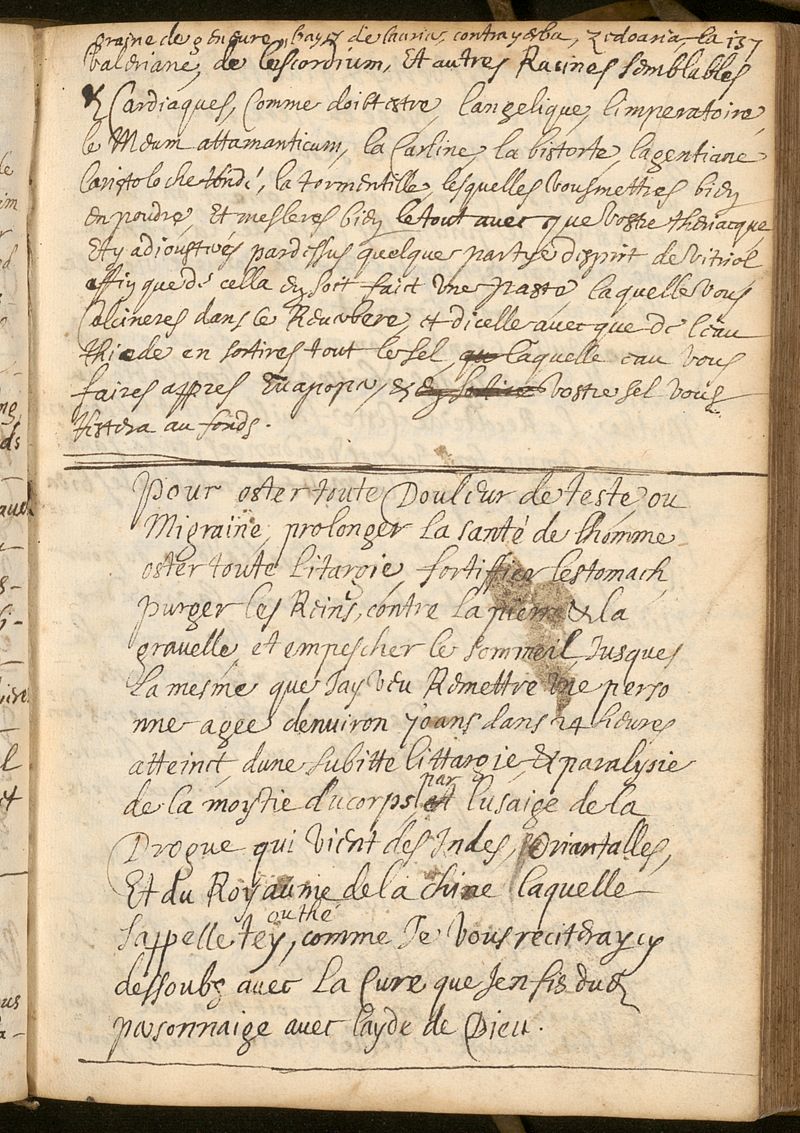 graine de geneure, bayes de lauria, contrayerba, zedoaria, la 137
valeriane, de lescordium, Et autres Racines semblables
& Cardiaques, Comme doibt estre, langelique, limperatoire,
le Meum attamanticum, la Carline, la bistorte, lagentiane
laristoloche Ronde, la tormentille, lesquelles vous mettres bien
en poudre, Et mesleres bien le tout avec que vostre theriacque
Et y adiousteres pardessus quelque partye despirit de vitriol
affin que de cella en soit faict une paste, laquelle vous
Calcineres dans le Reverbere, et dicelle avec que de leau
thiede en sortires tout le sel, laquelle eau vous
faires appres Evaporer, & vostre sel vous
Restera au fonds.
pour oster toute Douleur de teste, ou
Migraine, prolonger la santé de lhomme
oster toute Litargie, fortiffier lestomach,
purger les Reins, contre la pierre & la
gravelle et empescher le sommeil Jusques
La mesme que Jay veu Remettre une perso
nne agee denuiron 70 ans dans 24 heures
atteinct dune subitte littargie, & paralysie
de la moytie du corps par lusaige de la
Drogue qui vient des Indes, Oriantalles,
Et du Royaume de la chine laquelle
sappelle tey, ou thé comme Je vous reciteray cy
dessoubz avec La Cure que Jen fis dud
personnaige avec layde de Dieu.